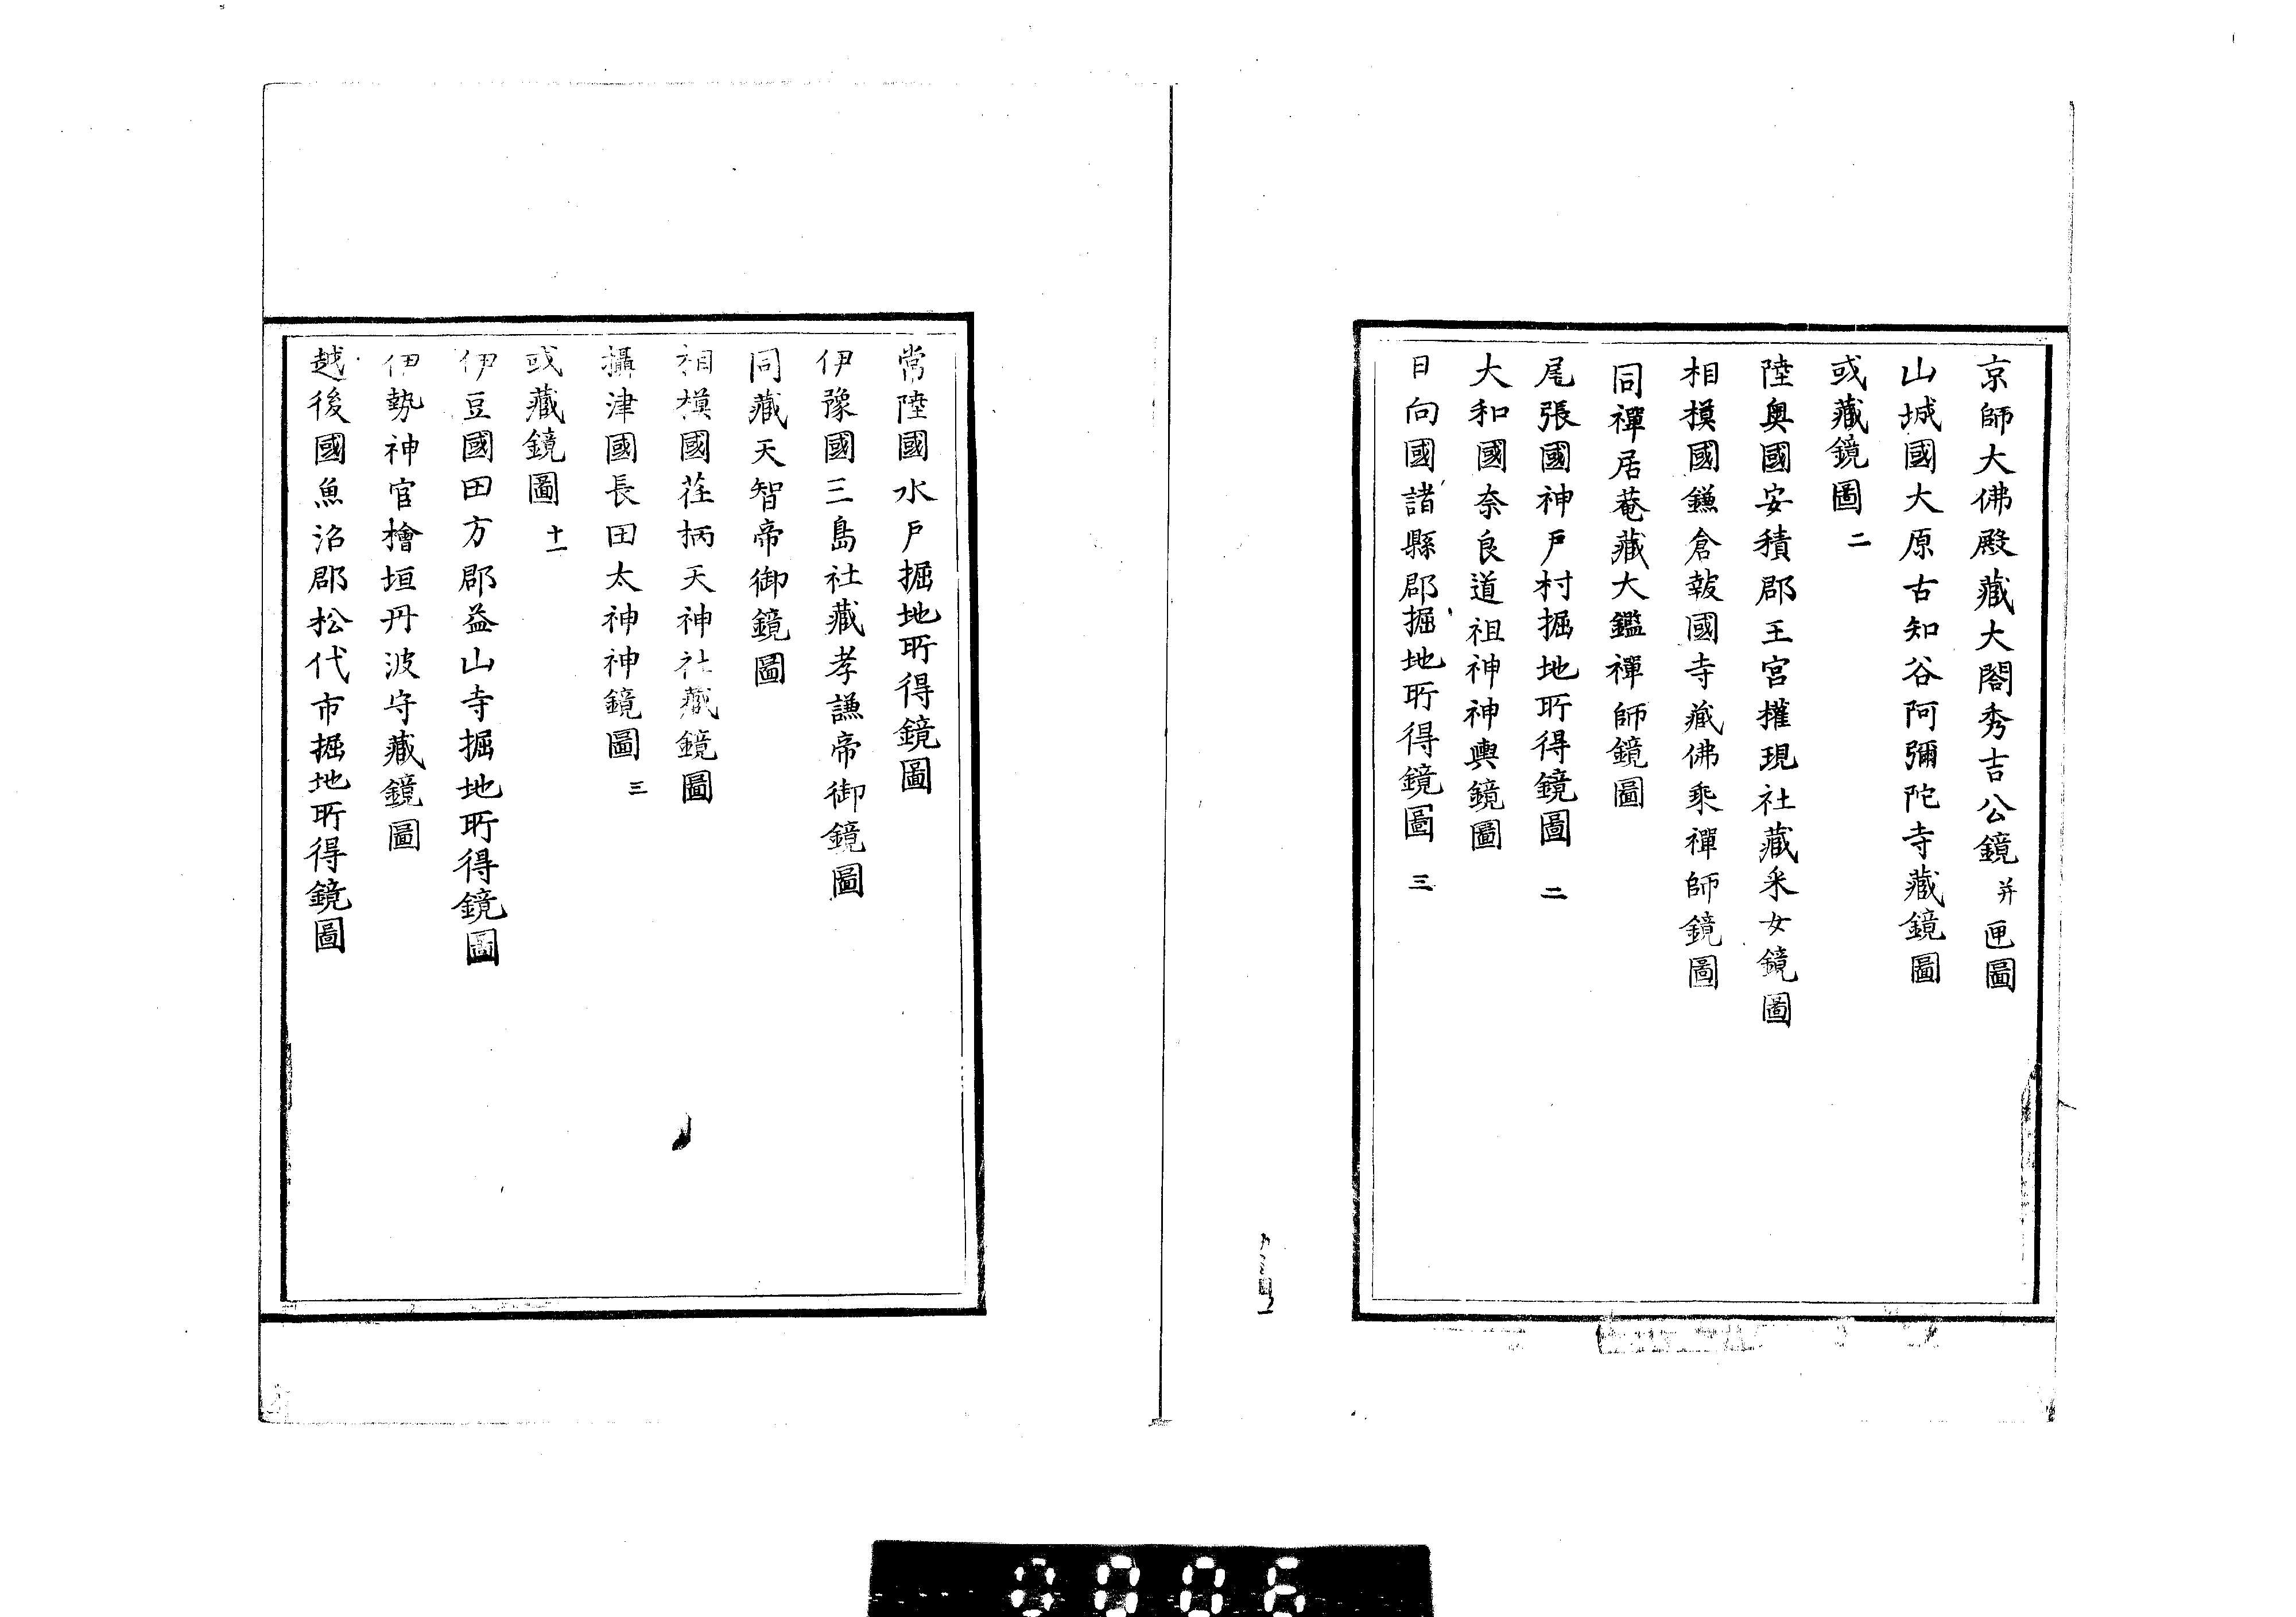 京師大佛殿藏大閤秀吉公鏡并匣圖
山城國大原古知谷阿彌陀寺藏鏡圖
或藏鏡圖二
陸奥國安積郡王宮權現社藏采女鏡圖
相模國鎌倉報國寺藏佛乘禪師鏡圖
同禪居菴藏大鑑禪師鏡圖
尾張國神戸村掘地所得鏡圖二
大和國奈良道祖神神輿鏡圖
日向國諸縣郡掘地所得鏡圖三
常陸國水戸掘地所得鏡圖
伊豫國三島社藏孝謙帝御鏡圖
同藏天智帝御鏡圖
相模國荏柄天神社藏鏡圖
攝津國長田太神神鏡圖三
或藏鏡圖十一
伊豆國田方郡益山寺掘地所得鏡圖
伊勢神官檜垣丹波守藏鏡圖
越後國魚沼郡松代市掘地所得鏡圖
0006